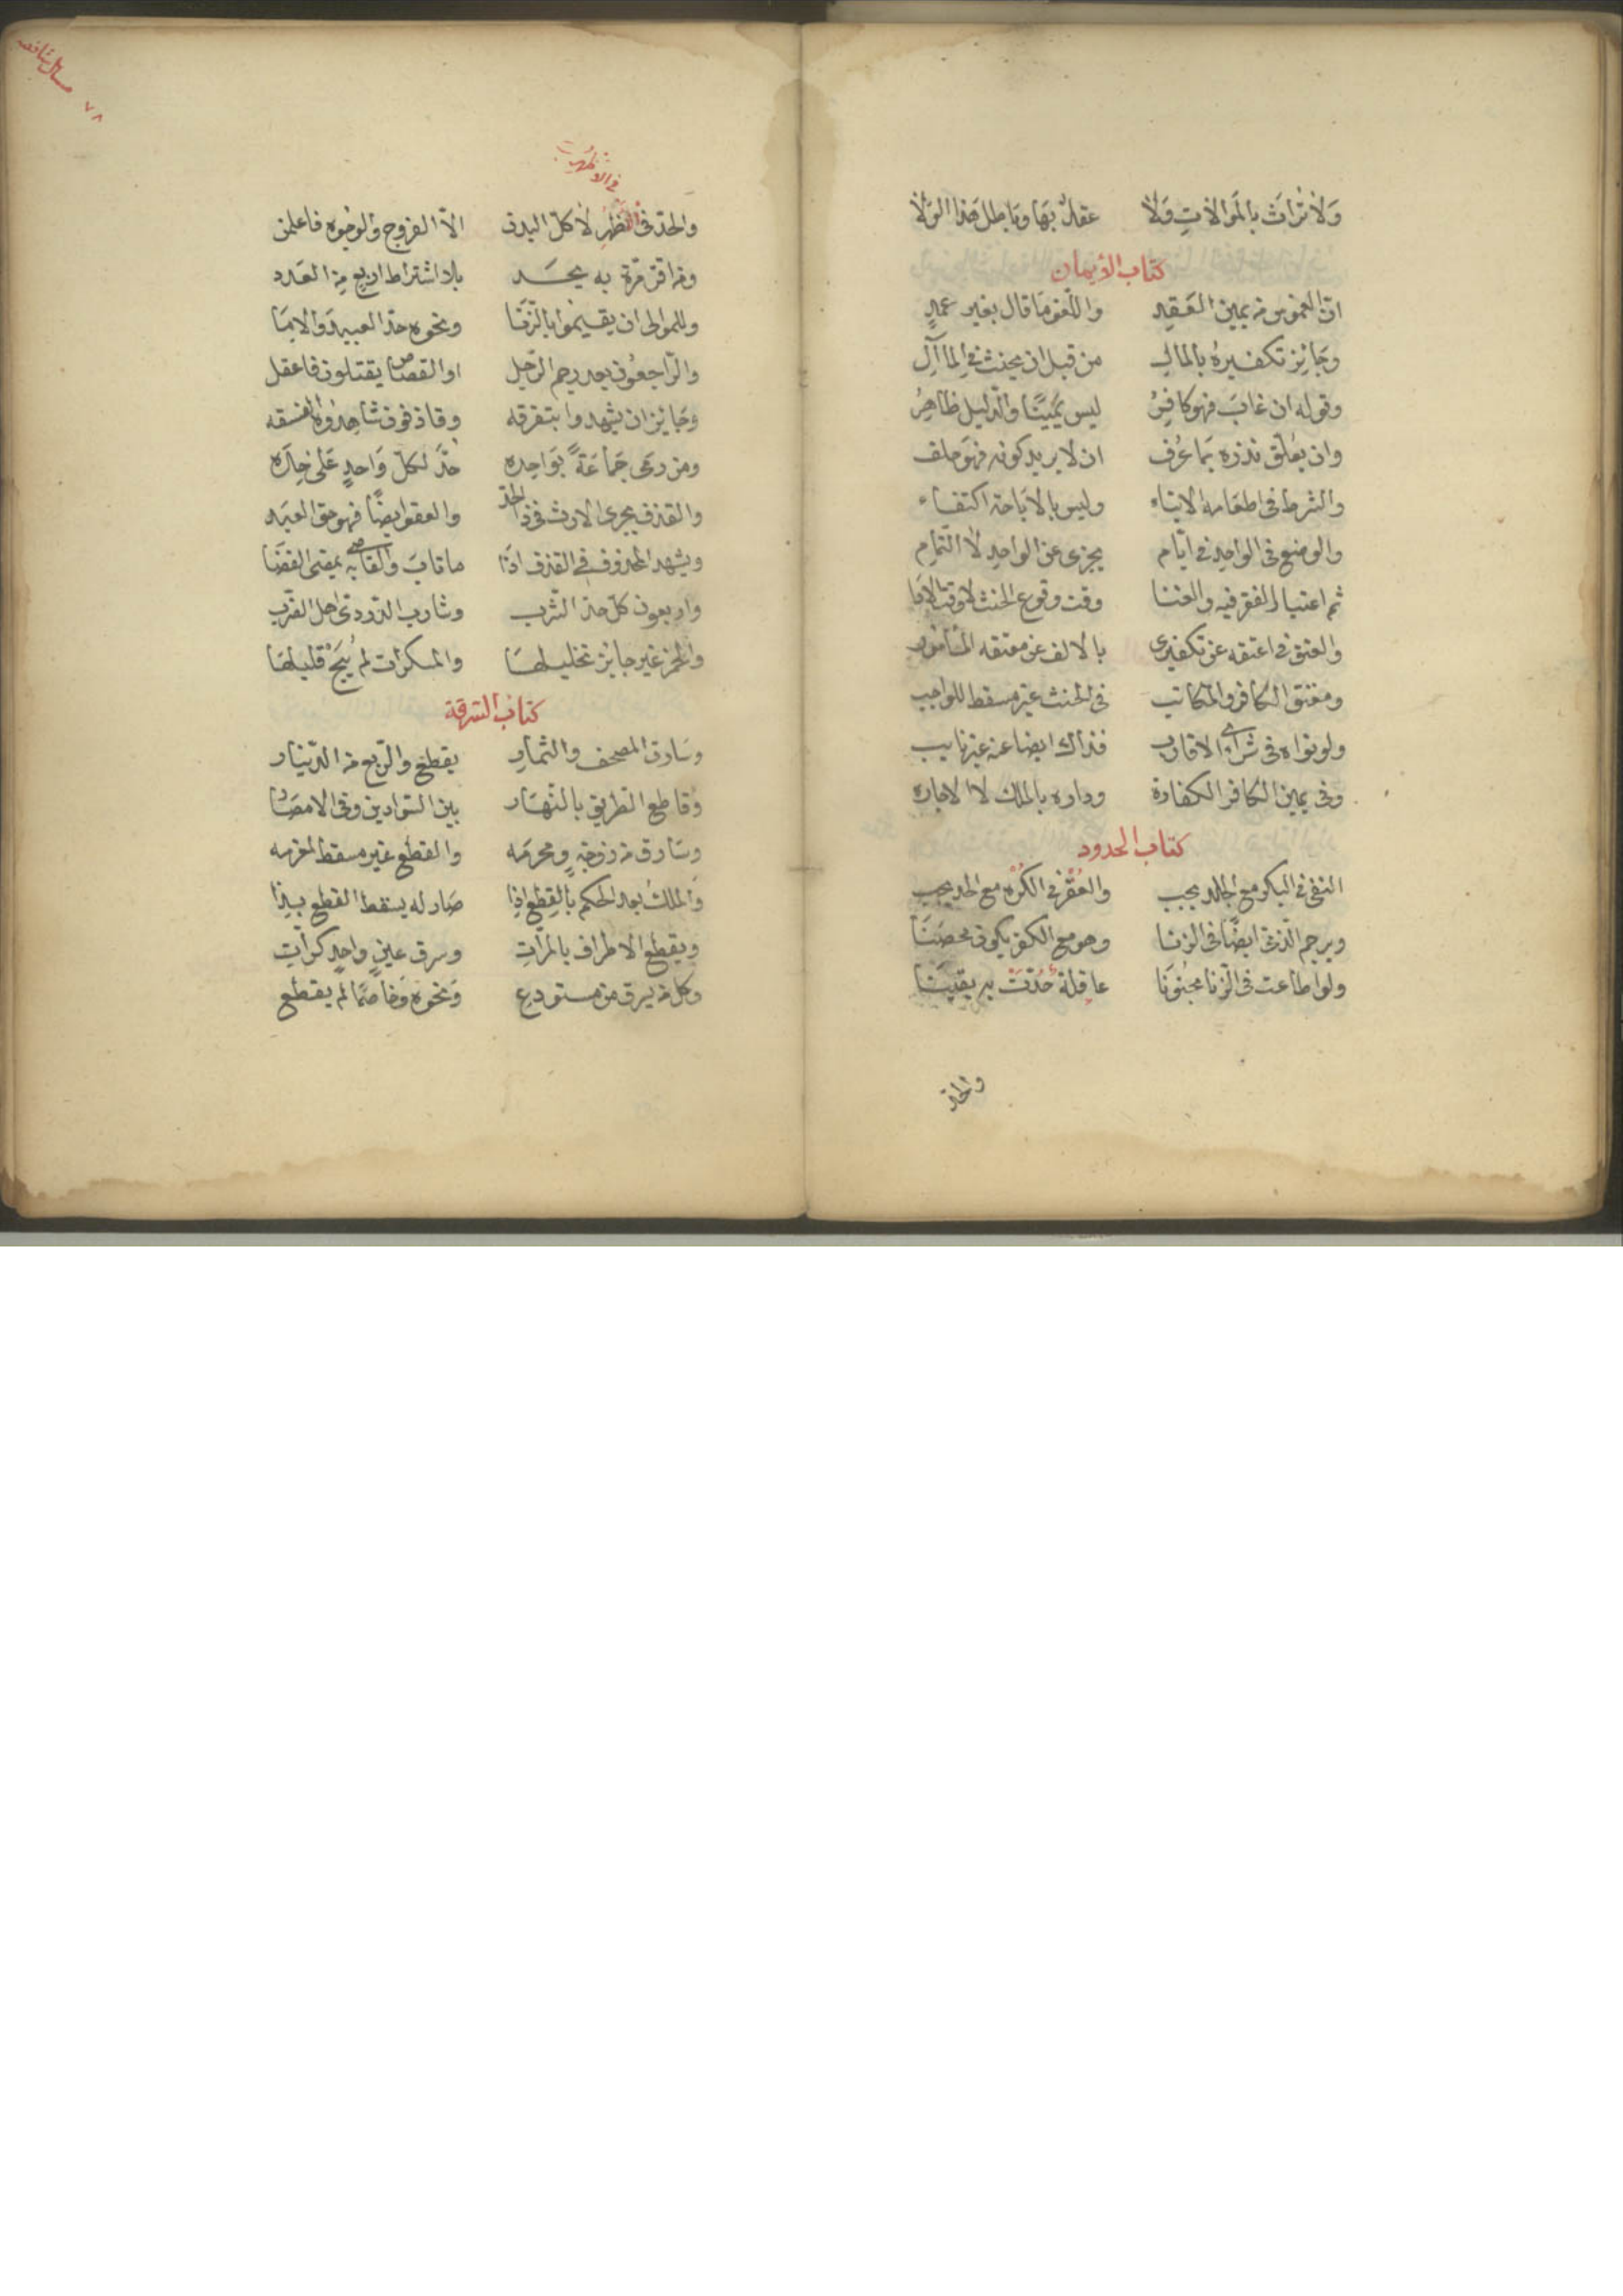 ولا تراث بالموالات ولا عقل بها وباطل هذا الولا
كتاب الأيمان
ان الغموس من يمين العقد واللغو ما قال بغير عمد
وجائز تكفيره بالمال من قبل ان يحنث في المآل
وقوله ان غاب فهو كافر ليس يمينا والدليل ظاهر
وان يعلق نذره بما عرف ان لا يريد كونه فهو حلف
والشرط في اطعامه الايتاء وليس بالاباحة اكتفاء
والوضع في الواحد في ايام يجزى عن الواحد لا التمام
ثم اعتبار الفقر فيه والغنا وقت وقوع الحنث لا وقت الادا
والعتق في اعتقه عن تكفيرى بالالف عن معتقه المأمور
ومعتق الكافر والمكاتب في الحنث غير مسقط للواجب
ولو نواه في شراء الاقارب فذاك ايضا عنه غير نايب
وفى يمين الكافر الكفارة وداره بالملك لا الاجاره
كتاب الحدود
النفى في البكر مع الجلد يجب والعقر في الكره مع الحد يجب
ويرجم الذمى ايضا في الزنا وهو مع الكفر يكون محصنا
ولو اطاعت في الزنا مجنونا عاقلة حدت به يقينا
والحد
في الاظهر
٧٨
والحد في الظهر لا كل البدن الا الفروج والوجوه فاعلمن
ومن اقر مرة به يحد بلا اشتراط اربع من العدد
وللموالى ان يقيموا بالزنا ونحوه حد العبيد والاما
والراجعون بعد رجم الرجل او القصاص يقتلون فاعقل
وجايز ان يشهدوا بتفرقه وقاذفون شاهدوه الفسقه
ومن دعى جماعة بواحده حد لكل واحد على حده
والقذف يجرى الارث في ذا الحد والعفو ايضا فهو حق العبد
ويشهد المحدوف في القذف اذا ما تاب والقاضى به يمضى القضا
واربعون كل حد الشرب وشارب الدردى اهل الضرب
والخمر غير جايز تخليلها والمسكرات لم يبح قليلها
كتاب السرقة
وسارق المصحف والثمار يقطع والربع من الدينار
وقاطع الطريق بالنهار بين السوادين وفى الامصار
وسارق من زوجة ومحرمه والقطع غير مسقط لمغرمه
والملك بعد الحكم بالقطع اذا صار له يسقط القطع بذا
ويقطع الاطراف بالمرات وسرق عين واحد كرات
وكل من يسرق من مستودع ونحوه وخاصما لم يقطع